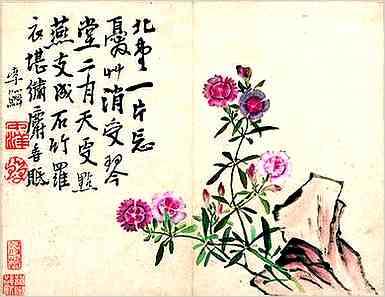 北堂一片忘
憂艸消受琴
堂二月天更點
燕支成石竹羅
衣堪繡麝香眠
李鱓